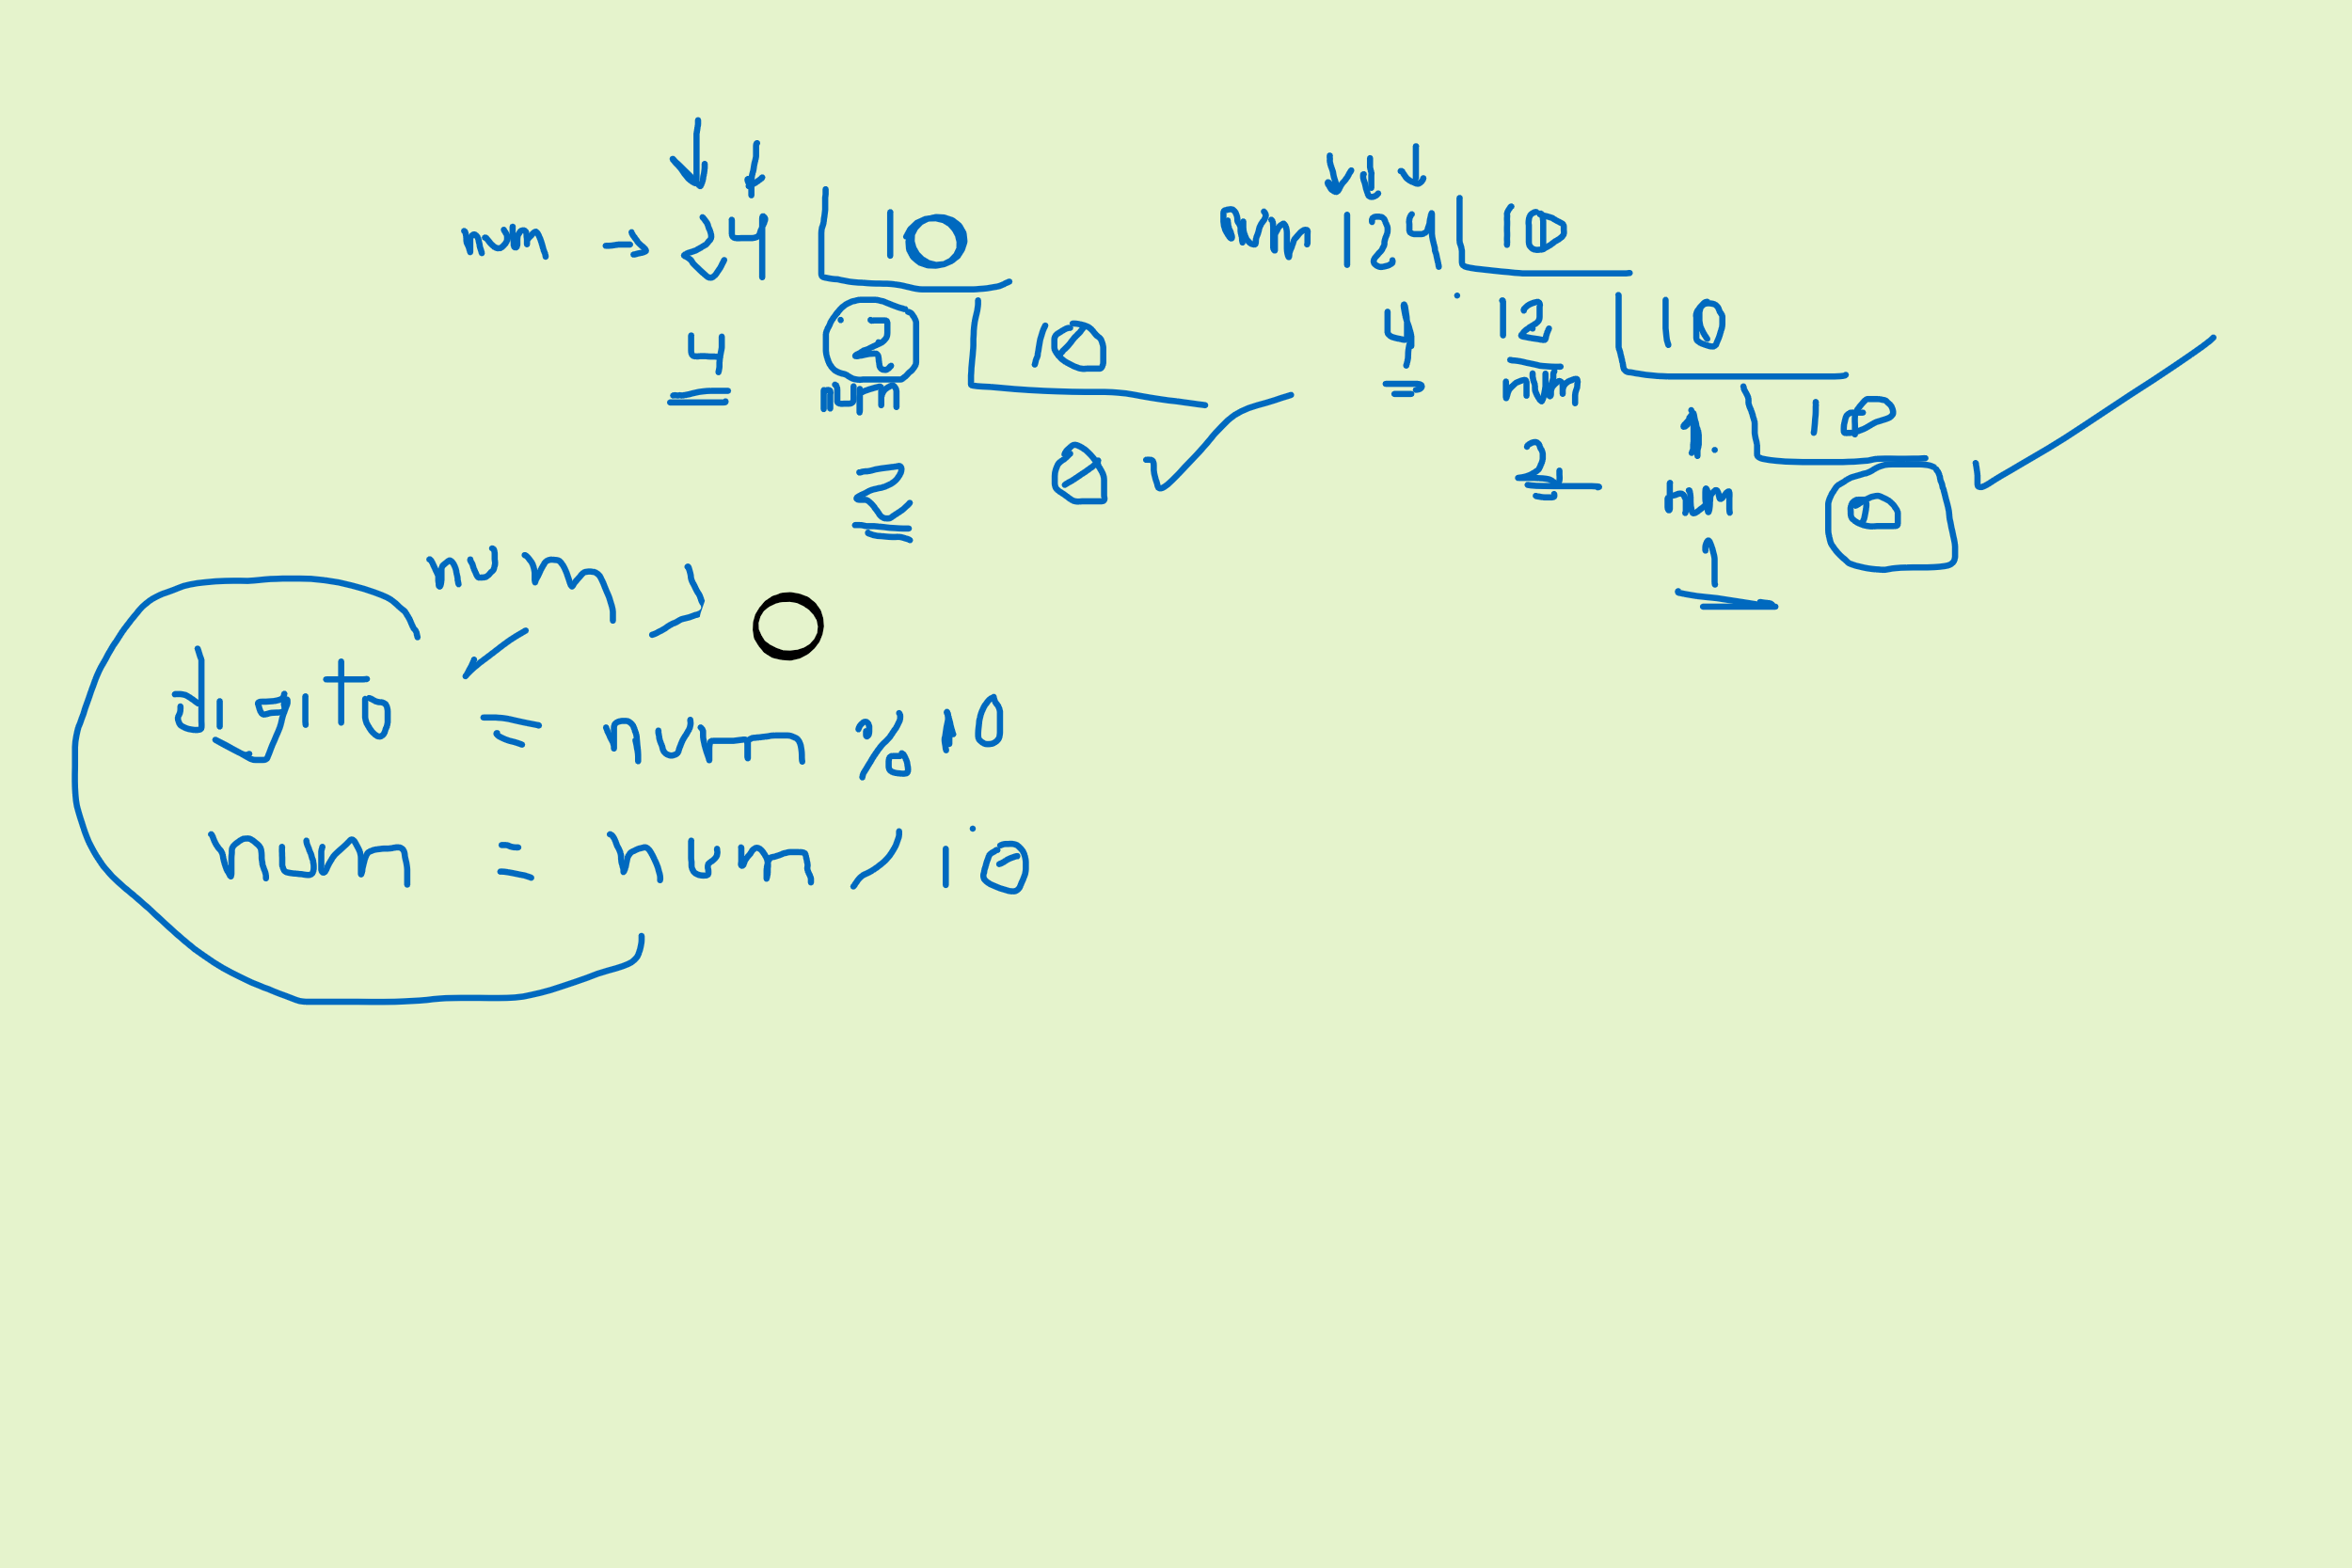 num → 24 10
4 2 10
num
2 0
num 124 10
4 12 10
num
2 1 10
num 0
1
num > 0
digito = num % 10
num = num / 10